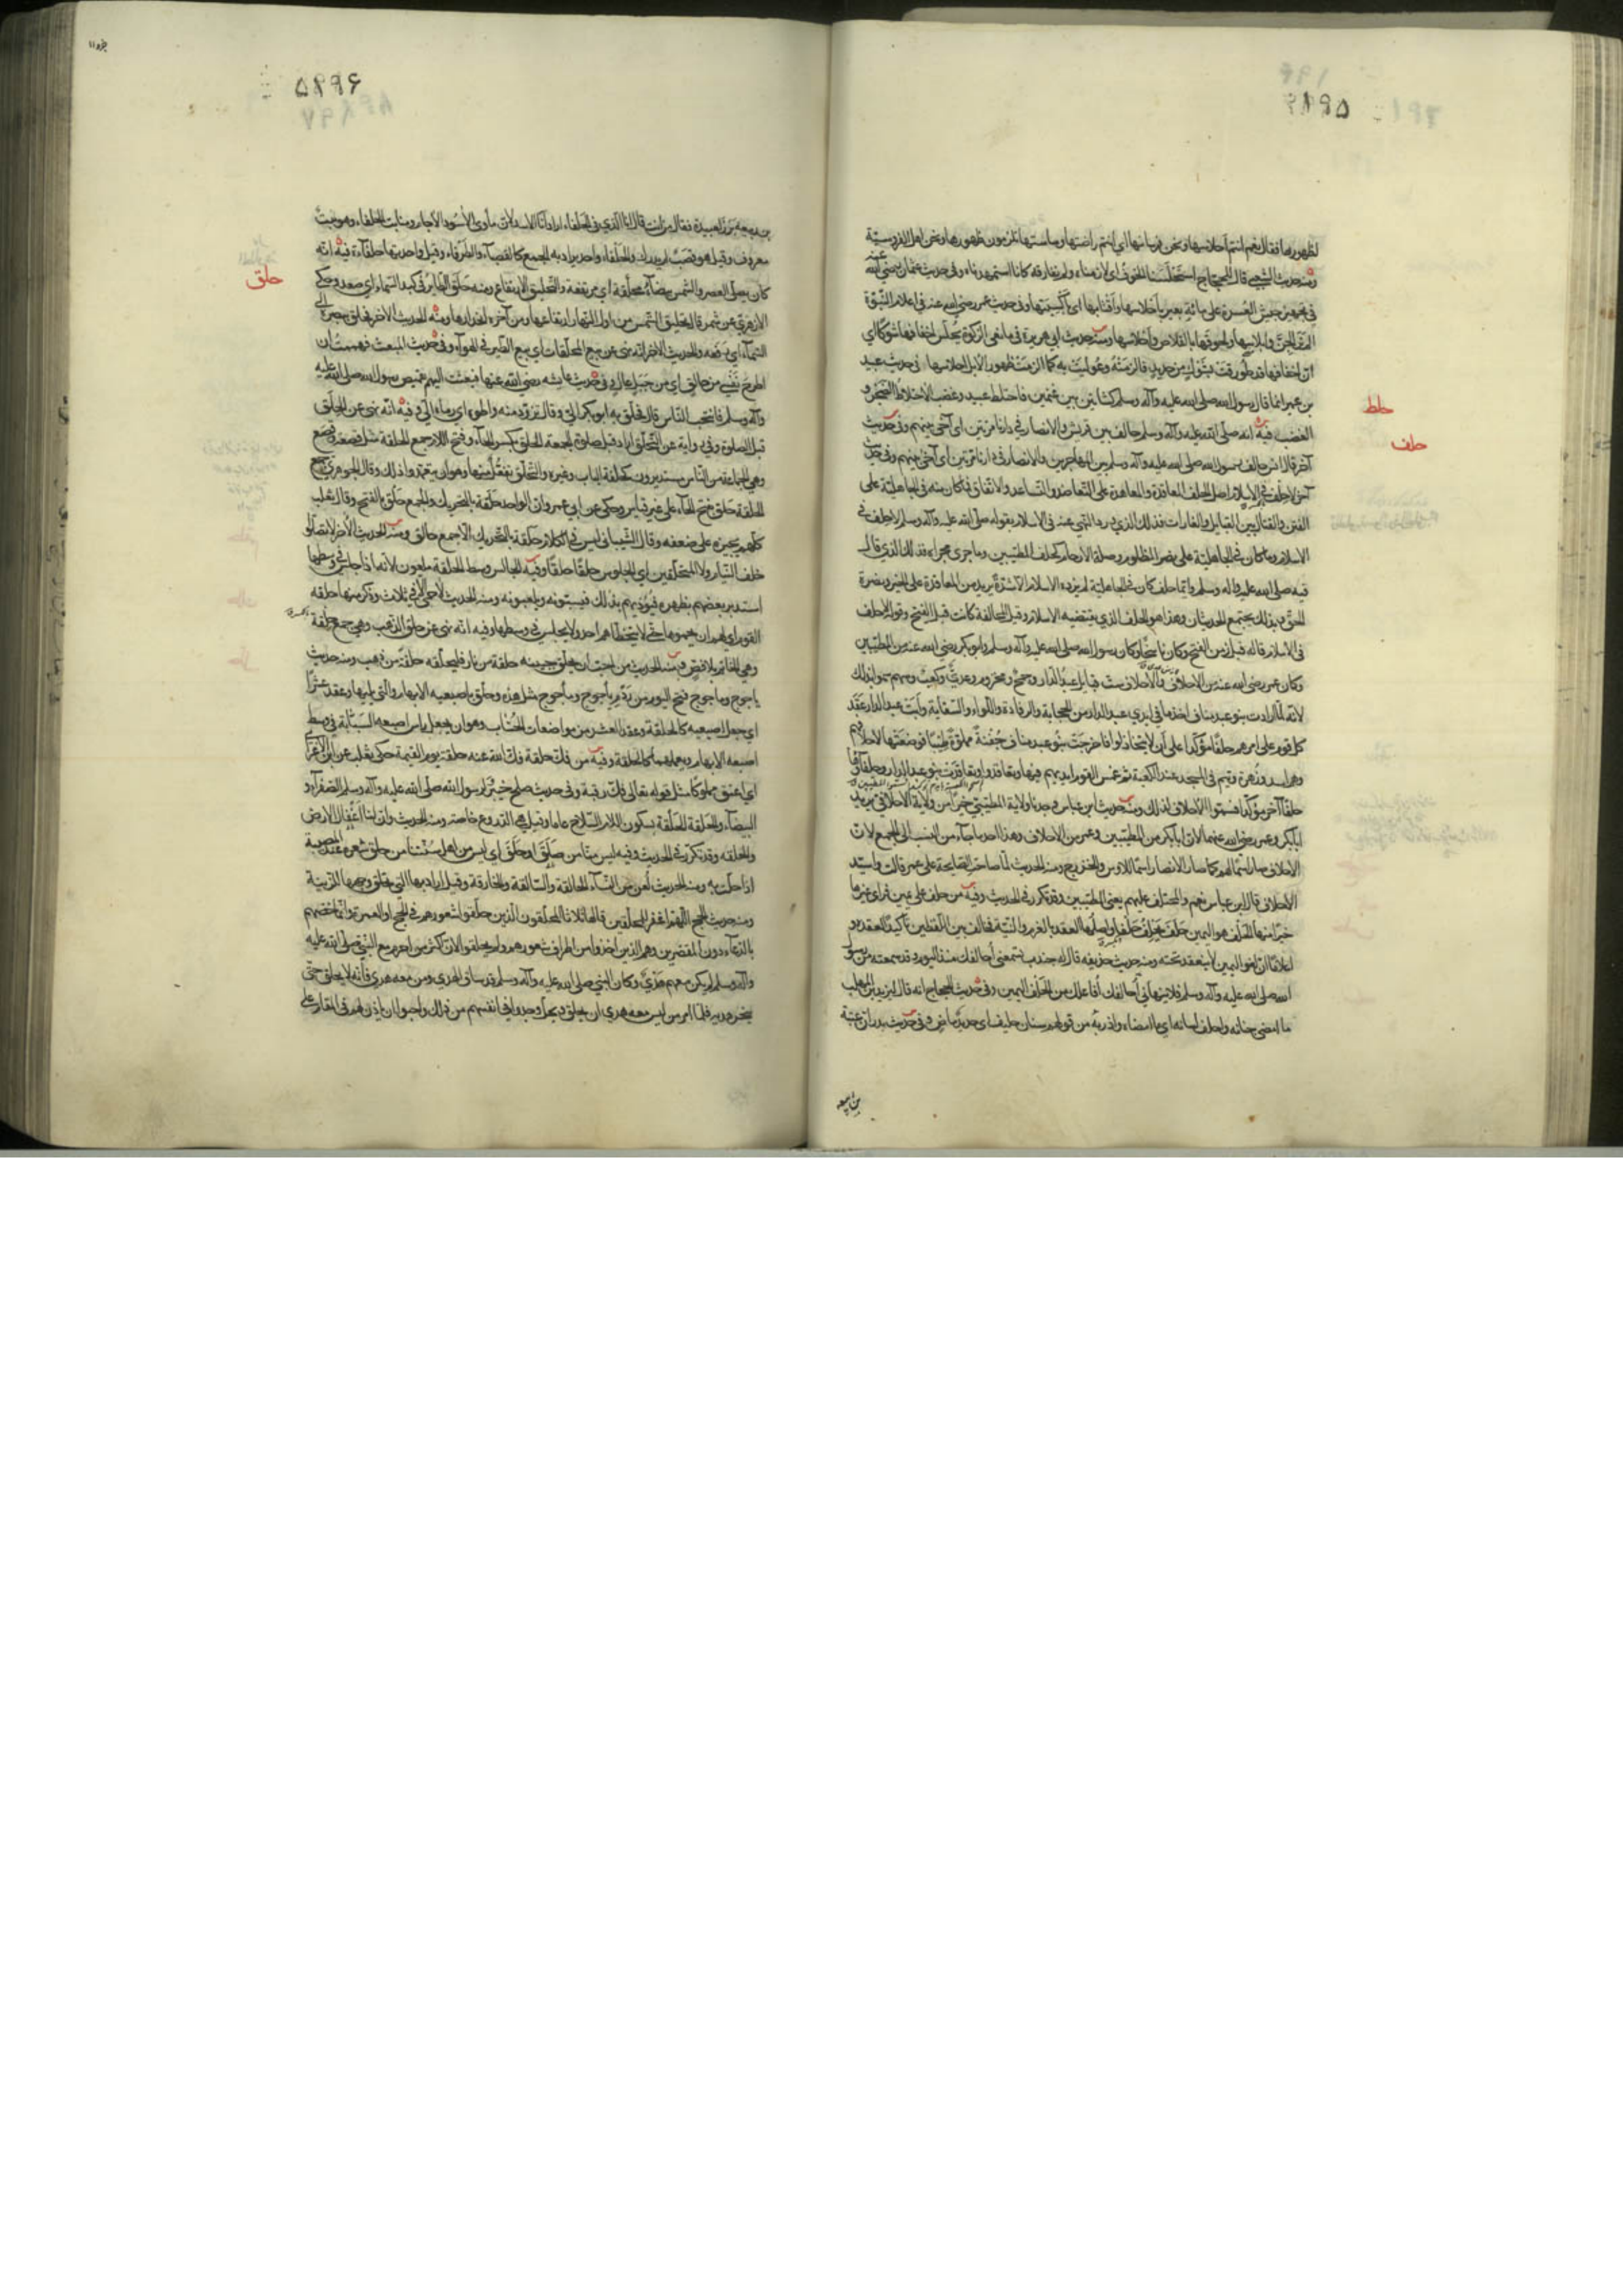 لظهورها فقال نعم انتم احلاسها ونحن فرسانها اي انتم راضتها وساستها تلزمون ظهورها ونحن اهل الفروسية
ومنه حديث الشعبي قال للحجاج استحلسنا الخوف اي لازمناه ولم نفارقه كانا استمهدناه وفي حديث عثمان رضي الله عنه
في تجهيز جيش العسرة علي مائة بعير باحلاسها واقتابها اي باكسيتها وفي حديث عمر رضي الله عنه في اعلام النبوة
الم تر الجن وابلاسها ولحوقها بالقلاص واحلاسها ومنه حديث ابي هريرة في مانعي الزكوة محلس اخفافها شوكا اي
ان اخفافها قد طورقت بشوك من حديد فالزمته وعوليت به كما الزمت ظهور الابل احلاسها في حديث عبيد
حلط
بن عمير انما قال رسول الله صلى الله عليه وآله وسلم كشاتين بين غنمين فاحتلط عبيد وغضب الاحتلاط الضجر و
حلف
الغضب فيه انه صلى الله عليه وآله وسلم حالف بين قريش والانصار في دارنا مرتين اي آخى بينهم وفي حديث
آخر قال انس حالف رسول الله صلى الله عليه وآله وسلم بين المهاجرين والانصار في دارنا مرتين اي آخى بينهم وفي حديث
آخر لا حلف في الاسلام اصل الحلف المعاقدة والمعاهدة على التعاضد والتساعد والاتفاق فما كان منه في الجاهلية على
الفتن والقتال بين القبايل والغارات فذلك الذي ورد النهي عنه في الاسلام بقوله صلى الله عليه وسلم لا حلف في
الاسلام وما كان في الجاهلية على نصر المظلوم وصلة الارحام كحلف المطيبين وما جرى مجراه فذلك الذي قال
فيه صلى الله عليه وآله وسلم وايما حلف كان في الجاهلية لم يزده الاسلام الا شدة يريد من المعاقدة على الخير ونصرة
الحق وبذلك يجتمع الحديثان وهذا هو الحلف الذي يقتضيه الاسلام وقيل المحالفة كانت قبل الفتح وقوله لا حلف
في الاسلام قاله قبل زمن الفتح وكان ناسخا وكان رسول الله صلى الله عليه وآله وسلم وابو بكر رضي الله عنه من المطيبين
وكان عمر رضي الله عنه من الاحلاف والاحلاف ست قبايل عبد الدار وجمح ومخزوم وعدي وكعب وسهم سموا بذلك
لانه لما ارادت بنو عبد مناف اخذ ما في ايدي عبد الدار من الحجابة والرفادة واللواء والسقاية وابت عبد الدار عقد
كل قوم على امرهم حلفا مؤكدا على ان لا يتخاذلوا فاخرجت بنو عبد مناف جفنة مملوة طيبا فوضعتها لاحلافهم
وهم اسد وزهرة وتيم في المسجد عند الكعبة ثم غمس القوم ايديهم فيها وتعاقدوا وتعاقدت بنو عبد الدار وحلفاؤها
حلفا آخر مؤكدا فسموا الاحلاف لذلك ومنه حديث ابن عباس وجدنا ولاية المطيبي خيرا من ولاية الاحلافي يريد
ابا بكر وعمر رضي الله عنهما لان ابا بكر من المطيبين وعمر من الاحلاف وهذا احد ما جاء من النسب الى الجمع لان
الاحلاف صار اسما لهم كما صار الانصار اسما للاوس والخزرج ومنه الحديث لما صاحت الصايحة على عمر قالت واسيد
الاحلاف قال ابن عباس نعم والمحتلف عليهم يعني المطيبين وقد تكرر في الحديث وفيه من حلف على يمين فراى غيرها
خيرا منها الحلف هو اليمين حلف يحلف حلفا واصلها العقد بالعزم والنية فخالف بين اللفظين تاكيدا لعقده و
اعلاما ان لغو اليمين لا ينعقد تحته ومنه حديث حذيفه قال له جندب تسمعني احالفك منذ اليوم وقد سمعته من رسول
الله صلى الله عليه وآله وسلم فلا تنهاني احالفك افاعلك من الحلف اليمين وفي حديث الحجاج انه قال ليزيد بن المهلب
ما امضى جنانه واحلف لسانه اي ما امضاه واذربه من قولهم سنان حليف اي حديد ماض وفي حديث بدر ان عتبة
بن ربيعه
۵۸۹۶
بن ربيعه برز لعبيدة فقال من انت قال انا الذي في الحلفاء اراد انا الاسد لان مأوى الاسود الاجام ومنابت الحلفاء وهو نبت
معروف وقيل هو قصب لم يدرك والحلفاء واحد يراد به الجمع كالقصباء والطرفاء وقيل واحدتها حلفاءة فيه انه
حلق
كان يصلي العصر والشمس بيضاء محلقة اي مرتفعة والتحليق الارتفاع ومنه حلق الطاير في كبد السماء اي صعد وحكى
الازهري عن شمر قال تحليق الشمس من اول النهار ارتفاعها ومن آخره انحدارها ومنه الحديث الاخر فحلق ببصره الى
السماء اي رفعه والحديث الاخر انه نهى عن بيع المحلقات اي بيع الطير في الهواء وفي حديث المبعث فهممت ان
اطرح نفسي من حالق اي من جبل عال وفي حديث عايشه رضي الله عنها فبعثت اليهم بقميص رسول الله صلى الله عليه
وآله وسلم فانتحب الناس قال فحلق به ابو بكر الي وقال تزود منه واطوه اي رماه الي وفيه انه نهى عن الحلق
قبل الصلوة وفي رواية عن التحلق اراد قبل صلوة الجمعة الحلق بكسر الحاء وفتح اللام جمع الحلقة مثل قصعة وقصع
وهي الجماعة من الناس مستديرون كحلقة الباب وغيره والتحلق تفعل منها وهو ان يتعمدوا ذلك وقال الجوهري جمع
الحلقة حلق بفتح الحاء على غير قياس وحكى عن ابي عمرو ان الواحد حلقة بالتحريك والجمع حلق بالفتح وقال ثعلب
كلهم يجيزه على ضعفه وقال الشيباني ليس في الكلام حلقة بالتحريك الا جمع حالق ومنه الحديث الاخر لا تصلوا
خلف النيام ولا المتحلقين اي الجلوس حلقا حلقا وفيه الجالس وسط الحلقة ملعون لانه اذا جلس في وسطها
استدبر بعضهم بظهره فيؤذيهم بذلك فيسبونه ويلعنونه ومنه الحديث لا حمى الا في ثلاث وذكر منها حلقه
القوم اي لهم ان يحموها حتى لا يتخطاهم احد ولا يجلس في وسطها وفيه انه نهى عن حلق الذهب وهي جمع حلقة
وهي الخاتم بلا فص ومنه الحديث من احب ان يحلق جبينه حلقة من نار فليحلقه حلقة من ذهب ومنه حديث
ياجوج وماجوج فتح اليوم من ردم ياجوج وماجوج مثل هذه وحلق باصبعيه الابهام والتي تليها وعقد عشرا
اي جعل اصبعيه كالحلقة وعقد العشر من مواضعات الحساب وهو ان يجعل راس اصبعه السبابة في وسط
اصبعه الابهام ويعملهما كالحلقة وفيه من فك حلقة فك الله عنه حلقة يوم القيمة حكى ثعلب عن ابن الاعرابي
اي اعتق مملوكا مثل قوله تعالى فك رقبة وفي حديث صلح خيبر ولرسول الله صلى الله عليه وآله وسلم الصفراء و
البيضاء والحلقة الحلقة بسكون اللام السلاح عاما وقيل هي الدروع خاصة ومنه الحديث وان لنا اغفال الارض
والحلقه وقد تكررت في الحديث وفيه ليس منا من صلق او حلق اي ليس من اهل سنتنا من حلق شعره عند المصيبة
اذا حلت به ومنه الحديث لعن من النساء الحالقة والسالقة والخارقة وقيل اراد بها التي تحلق وجهها للزينة
ومنه حديث الحج اللهم اغفر للمحلقين قالها ثلاثا المحلقون الذين حلقوا شعورهم في الحج او العمرة وانما خصهم
بالدعاء دون المقصرين وهم الذين اخذوا من اطراف شعورهم ولم يحلقوا لان اكثر من احرم مع النبي صلى الله عليه
وآله وسلم لم يكن معهم هدي وكان النبي صلى الله عليه وآله وسلم قد ساق الهدي ومن معه هدي فانه لا يحلق حتى
ينحر هديه فلما امر من ليس معه هدي ان يحلق ويحل وجدوا في انفسهم من ذلك واحبوا ان ياذن لهم في المقام على